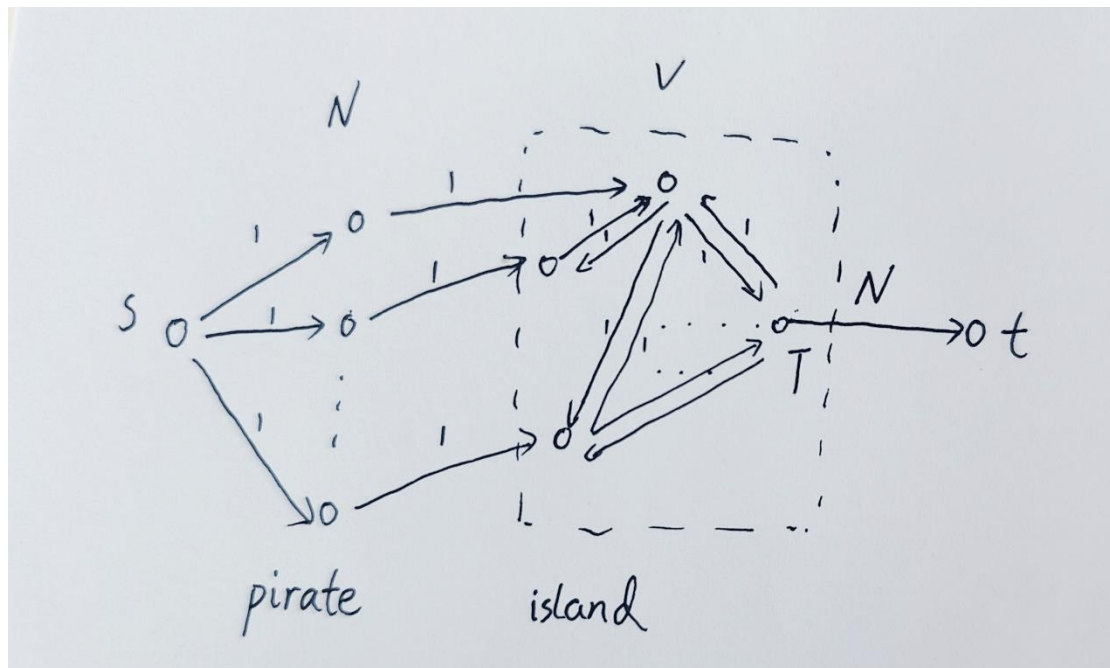 N
V
1
1
1
1
1
1
1
1
1
1
S
N
t
T
1
1
1
1
pirate
island